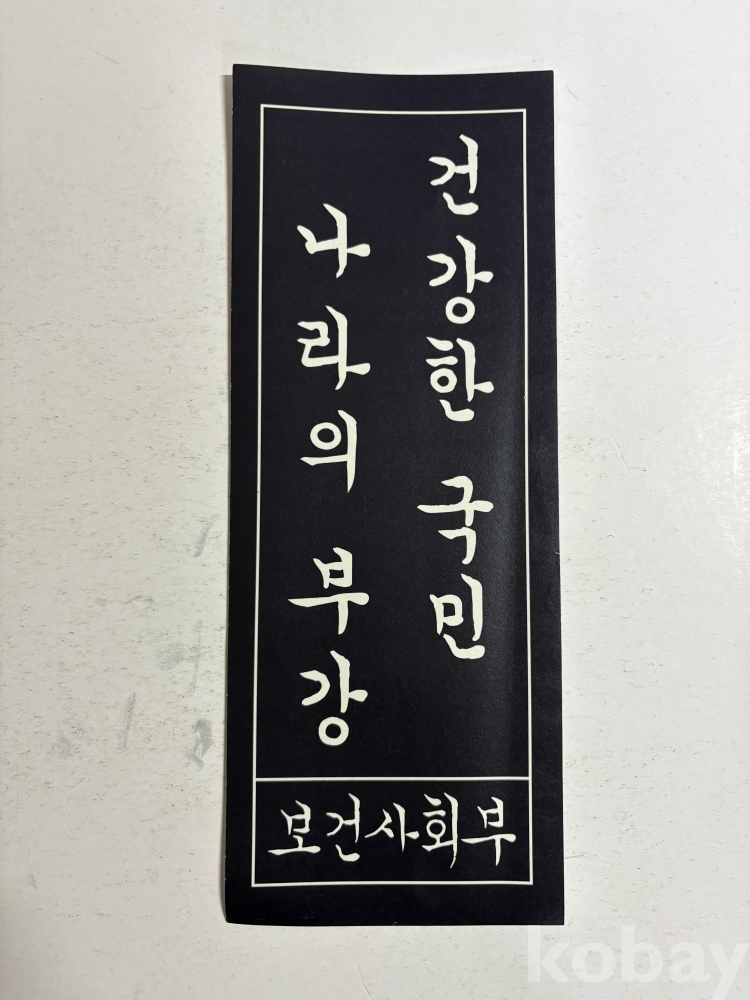 건강한 국민
나라의 부강
보건사회부
kobay